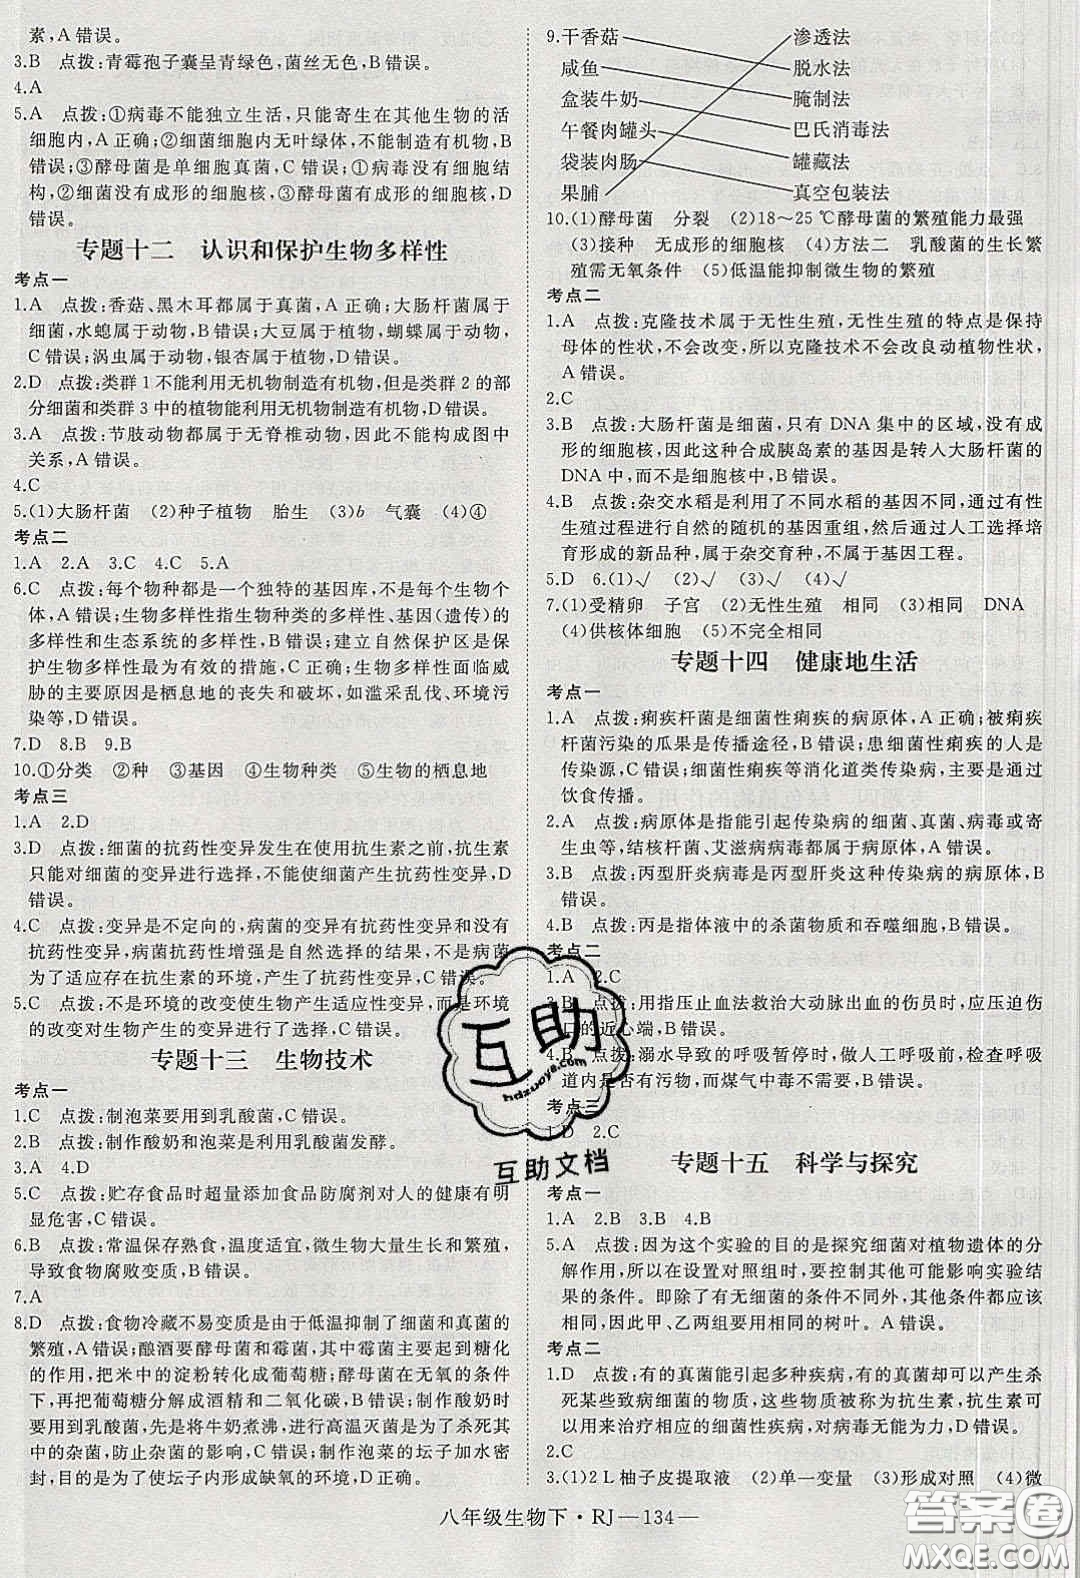 素,A错误。
3.B　点拨:青霉孢子囊呈青绿色,菌丝无色,B错误。
4.A
5.A　点拨:①病毒不能独立生活,只能寄生在其他生物的活
细胞内,A正确;②细菌细胞内无叶绿体,不能制造有机物,B
错误;③酵母菌是单细胞真菌,C错误;①病毒没有细胞结
构,②细菌没有成形的细胞核,③酵母菌有成形的细胞核,D
错误。
专题十二　认识和保护生物多样性
考点一
1.A　点拨:香菇、黑木耳都属于真菌,A正确;大肠杆菌属于
细菌,水螅属于动物,B错误;大豆属于植物,蝴蝶属于动物,
C错误;涡虫属于动物,银杏属于植物,D错误。
2.D　点拨:类群1不能利用无机物制造有机物,但是类群2的部
分细菌和类群3中的植物能利用无机物制造有机物,D错误。
3.A　点拨:节肢动物都属于无脊椎动物,不能构成图中
关系,A错误。
4.C
5.(1)大肠杆菌　(2)种子植物　胎生　(3)b　气囊　(4)④
考点二
1.A　2.A　3.C　4.C　5.A
6.C　点拨:每个物种都是一个独特的基因库,不是每个生物个
体,A错误;生物多样性指生物种类的多样性、基因(遗传)的
多样性和生态系统的多样性,B错误;建立自然保护区是保
护生物多样性最为有效的措施,C正确;生物多样性面临威
胁的主要原因是栖息地的丧失和破坏,如滥采乱伐、环境污
染等,D错误。
7.D　8.B　9.B
10.①分类　②种　③基因　④生物种类　⑤生物的栖息地
考点三
1.A　2.D
3.D　点拨:细菌的抗药性变异发生在使用抗生素之前,抗生素
只能对细菌的变异进行选择,不能使细菌产生抗药性变异,D
错误。
4.C　点拨:变异是不定向的,病菌的变异有抗药性变异和没有
抗药性变异,病菌抗药性增强是自然选择的结果,不是病菌
为了适应存在抗生素的环境,产生了抗药性变异,C错误。
5.C　点拨:不是环境的改变使生物产生适应性变异,而是环境
的改变对生物产生的变异进行了选择,C错误。
专题十三　生物技术
考点一
1.C　点拨:制泡菜要用到乳酸菌,C错误。
2.B　点拨:制作酸奶和泡菜是利用乳酸菌发酵。
3.A　4.D
5.C　点拨:贮存食品时超量添加食品防腐剂对人的健康有明
显危害,C错误。
6.B　点拨:常温保存熟食,温度适宜,微生物大量生长和繁殖,
导致食物腐败变质,B错误。
7.A
8.D　点拨:食物冷藏不易变质是由于低温抑制了细菌和真菌的
繁殖,A错误;酿酒要酵母菌和霉菌,其中霉菌主要起到糖化
的作用,把米中的淀粉转化成葡萄糖;酵母菌在无氧的条件
下,再把葡萄糖分解成酒精和二氧化碳,B错误;制作酸奶时
要用到乳酸菌,先是将牛奶煮沸,进行高温灭菌是为了杀死其
中的杂菌,防止杂菌的影响,C错误;制作泡菜的坛子加水密
封,目的是为了使坛子内形成缺氧的环境,D正确。
9.干香菇　渗透法
咸鱼　脱水法
盒装牛奶　腌制法
午餐肉罐头　巴氏消毒法
袋装肉肠　罐藏法
果脯　真空包装法
10.(1)酵母菌　分裂　(2)18～25℃酵母菌的繁殖能力最强
(3)接种　无成形的细胞核　(4)方法二　乳酸菌的生长繁
殖需无氧条件　(5)低温能抑制微生物的繁殖
考点二
1.A　点拨:克隆技术属于无性生殖,无性生殖的特点是保持
母体的性状,不会改变,所以克隆技术不会改良动植物性状,
A错误。
2.C
3.B　点拨:大肠杆菌是细菌,只有DNA集中的区域,没有成
形的细胞核,因此这种合成胰岛素的基因是转人大肠杆菌的
DNA中,而不是细胞核中,B错误。
4.B　点拨:杂交水稻是利用了不同水稻的基因不同,通过有性
生殖过程进行自然的随机的基因重组,然后通过人工选择培
育形成的新品种,属于杂交育种,不属于基因工程。
5.D　6.(1)√　(2)√　(3)√　(4)√
7.(1)受精卵　子宫　(2)无性生殖　相同　(3)相同　DNA
(4)供核体细胞　(5)不完全相同
专题十四　健康地生活
考点一
1.A　点拨:痢疾杆菌是细菌性痢疾的病原体,A正确;被痢疾
杆菌污染的瓜果是传播途径,B错误;患细菌性痢疾的人是
传染源,C错误;细菌性痢疾等消化道类传染病,主要是通过
饮食传播。
2.A　点拨:病原体是指能引起传染病的细菌、真菌、病毒或寄
生虫等,结核杆菌、艾滋病病毒都属于病原体,A错误。
3.B　点拨:丙型肝炎病毒是丙型肝炎这种传染病的病原体,B
错误。
4.B　点拨:丙是指体液中的杀菌物质和吞噬细胞,B错误。
考点二
1.A　2.C
3.B　点拨:用指压止血法救治大动脉出血的伤员时,应压迫伤
口的近心端,B错误。
4.B　点拨:溺水导致的呼吸暂停时,做人工呼吸前,检查呼吸
道内是否有污物,而煤气中毒不需要,B错误。
考点三
1.D　2.C
专题十五　科学与探究
考点一
1.A　2.B　3.B　4.B
5.A　点拨:因为这个实验的目的是探究细菌对植物遗体的分
解作用,所以在设置对照组时,要控制其他可能影响实验结
果的条件。即除了有无细菌的条件不同外,其他条件都应该
相同,因此甲、乙两组要用相同的树叶。A错误。
考点二
1.D　点拨:有的真菌能引起多种疾病,有的真菌却可以产生杀
死某些致病细菌的物质,这些物质被称为抗生素,抗生素可
以用来治疗相应的细菌性疾病,对病毒无能为力,D错误。
2.C
3.(1)2 L柚子皮提取液　(2)单一变量　(3)形成对照　(4)微
八年级生物下·RJ—134—
互助
hdzuoye.com
互助文档
答案圈
MXQE.COM